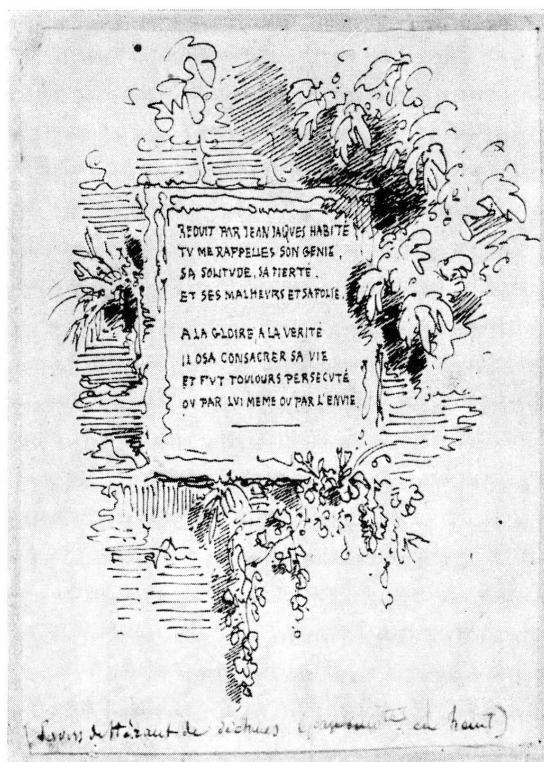 REDUIT PAR JEAN JAQUES HABITÉ
TV ME RAPPELLES SON GENIE,
SA SOLITVDE, SA FIERTE,
ET SES MALHEVRS ET SA FOLIE.
A LA GLOIRE, A LA VERITÉ
IL OSA CONSACRER SA VIE
ET FVT TOVIOVRS PERSECVTÉ
OV PAR LVI MEME OV PAR L'ENVIE
de en haut)